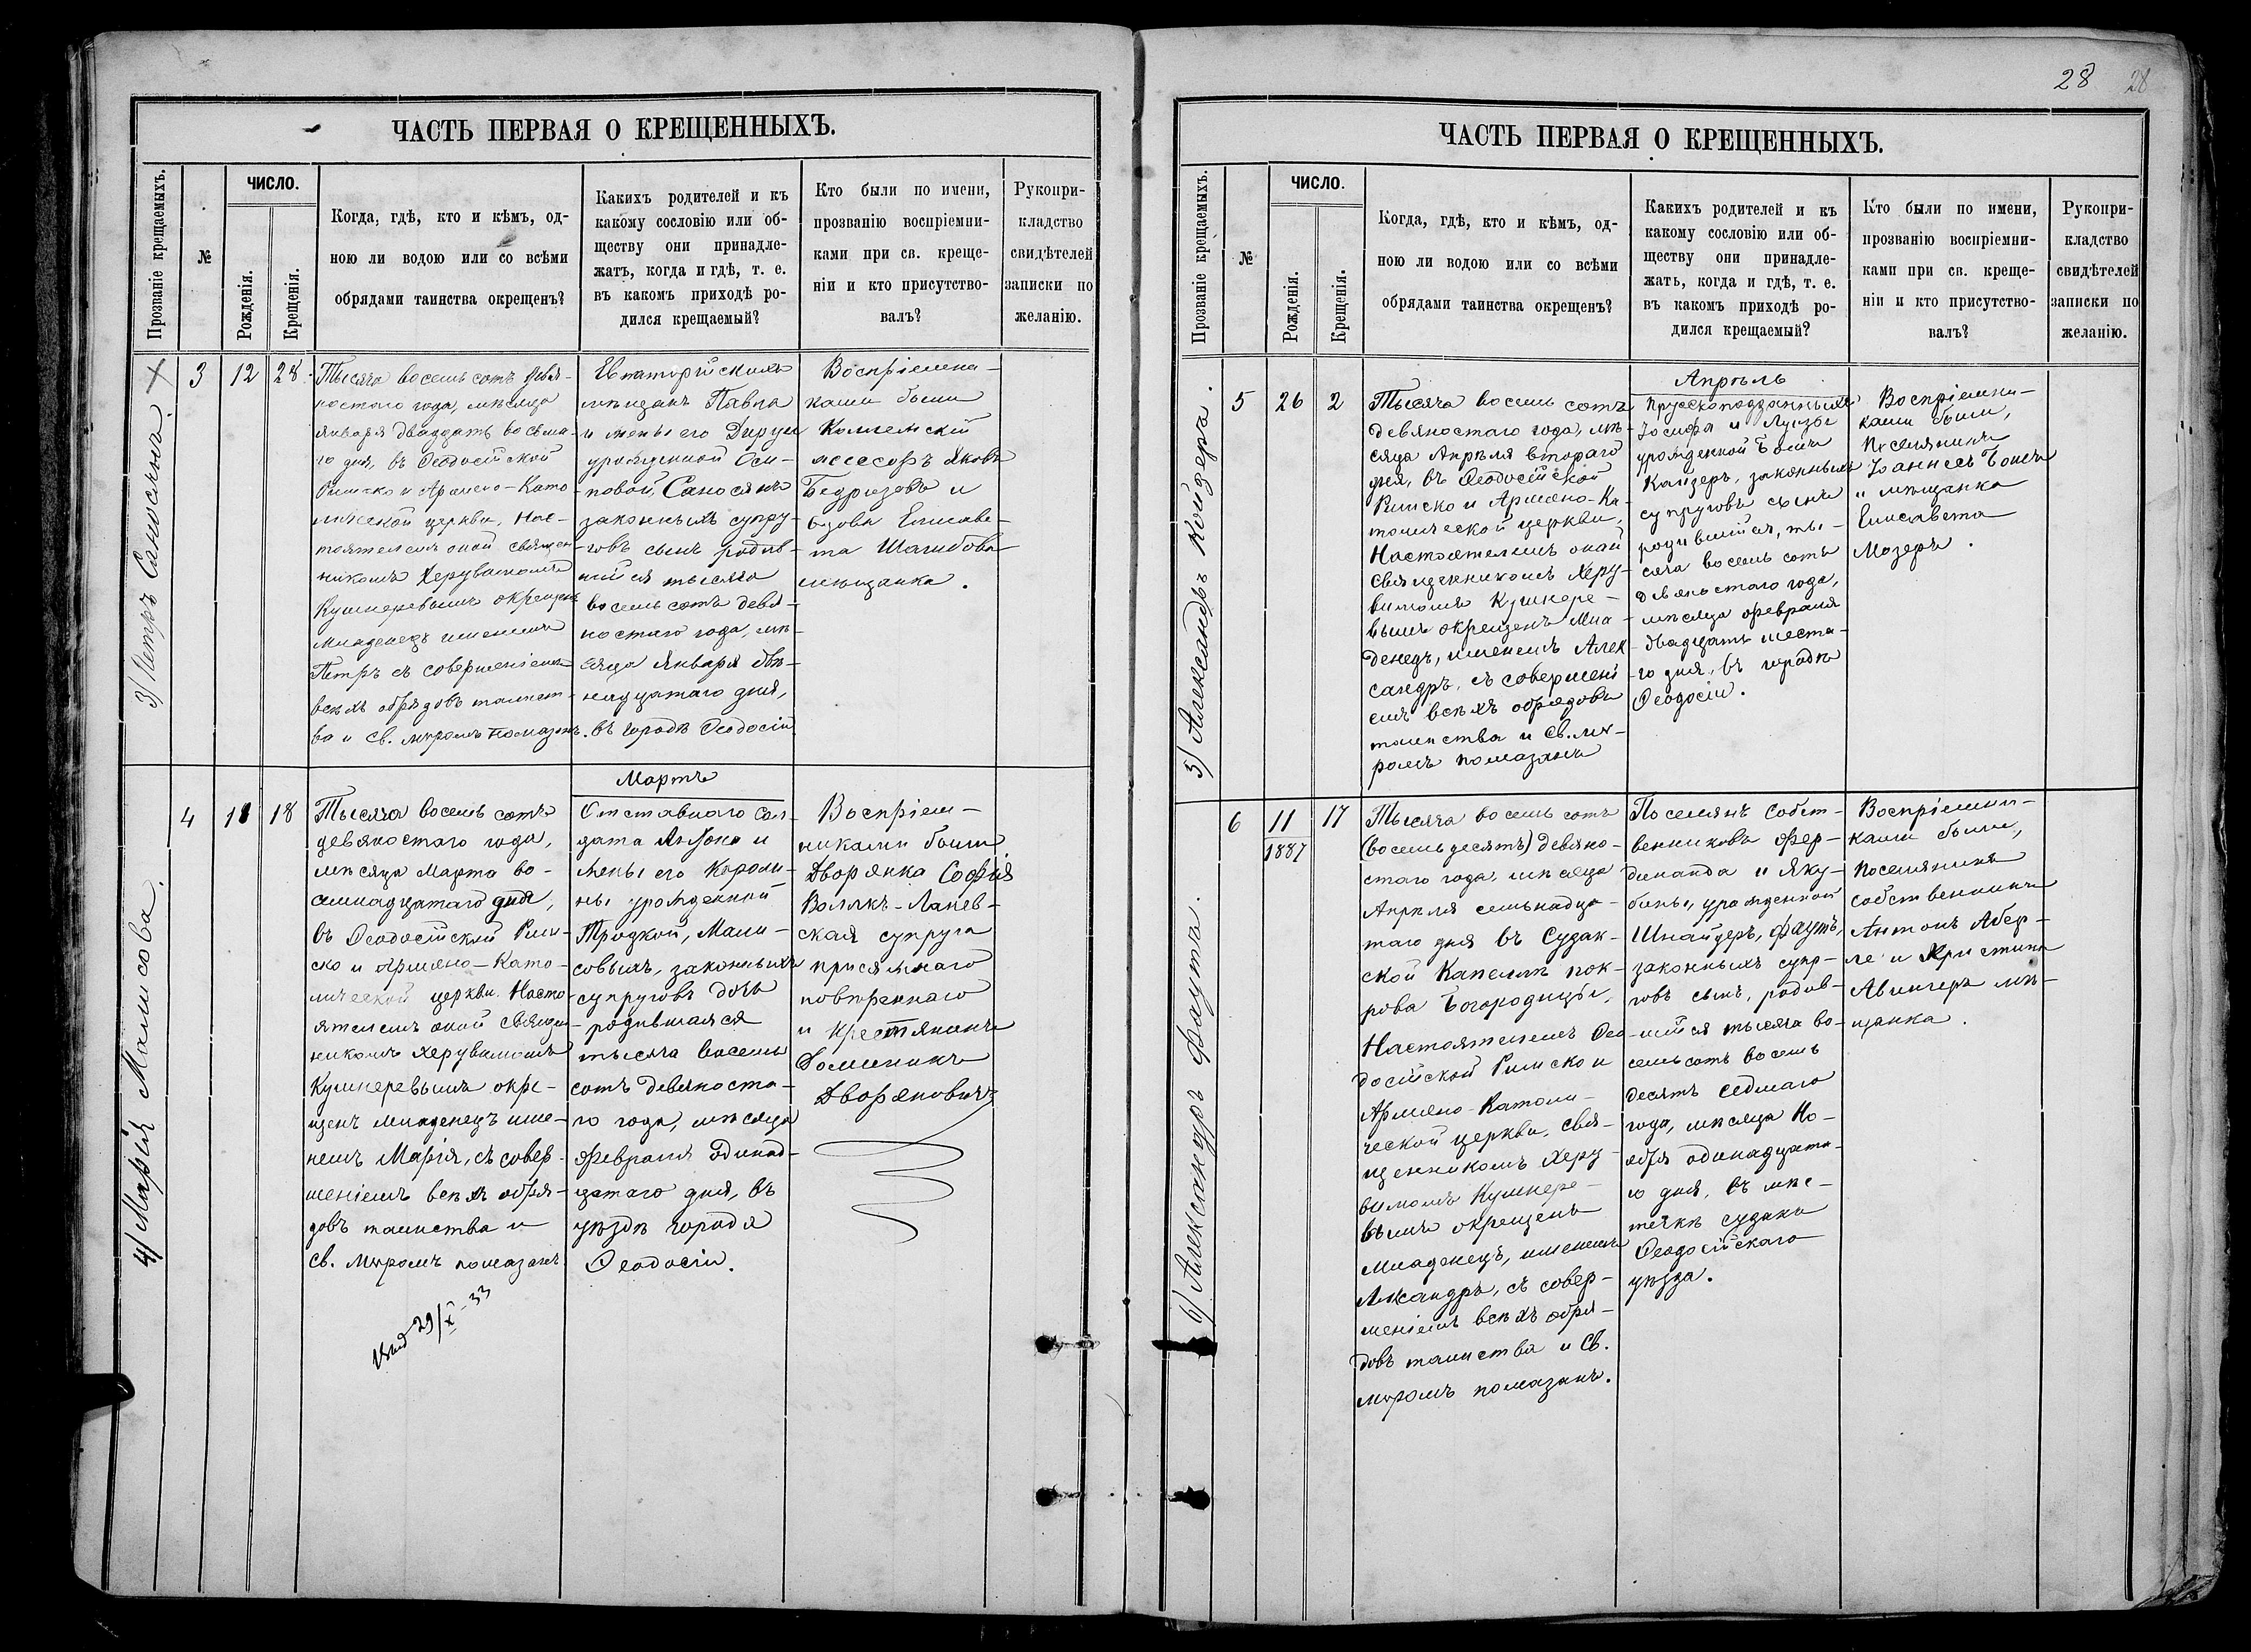 28 28
ЧАСТЬ ПЕРВАЯ О КРЕЩЕННЫХЪ.
Прозваніе крещаемыхъ.
№
ЧИСЛО.
Рожденія.
Крещенія.
Когда, гдѣ, кто и кѣмъ, од-
ною ли водою или со всѣми
обрядами таинства окрещенъ?
Какихъ родителей и къ
какому сословію или об-
ществу они принадле-
жатъ, когда и гдѣ, т. е.
въ какомъ приходѣ ро-
дился крещаемый?
Кто были по имени,
прозванію воспріемни-
ками при св. креще-
ніи и кто присутство-
валъ?
Рукопри-
кладство
свидѣтелей
записки по
желанію.
3/ Петръ Саносянъ.
3
12
28
Тысяча восемь сотъ девя-
ностаго года, мѣсяца
января двадцать восьма-
го дня, въ Ѳеодосійской
Римско и Армяно-Като
лической церкви, Нас-
тоятелемъ оной священ
никомъ Херувимомъ
Кушнеревымъ окрещенъ
младенецъ именемъ
Петръ съ совершеніемъ
всѣхъ обрядовъ таинст-
ва и св. мѵромъ помазанъ.
Евпаторійскихъ
мѣщанъ Павла
и жены его Дируи
урожденной Оси-
повой, Саносянъ
законныхъ супру-
говъ сынъ родив-
шійся тысяча
восемь сотъ девя-
ностаго года, мѣ-
сяца Января двѣ-
надцатаго дня,
въ городѣ Ѳеодосіи
Воспріемни-
ками были
Коллежскій
ассесоръ Яковъ
Бедризовъ и
вдова Елисаве-
та Шагибова
мѣщанка.
4/ Марія Мамсова.
4
11
18
Тысяча восемь сотъ
девяностаго года,
мѣсяца Марта во-
семнадцатаго дня,
въ Ѳеодосійской Рим-
ско и Армяно-Като-
лической церкви. Насто-
ятелемъ оной священ-
никомъ Херувимомъ
Кушнеревымъ окре-
щенъ младенецъ име-
немъ Марія, съ совер-
шеніемъ всѣхъ обря-
довъ таинства и
св. мѵромъ помазанъ
29/X-33
Мартъ
Отставнаго Сол-
дата Антона и
жены его Кароли-
ны урожденной
Троцкой, Мам-
совыхъ, законныхъ
супруговъ дочь
родившаяся
тысяча восемь
сотъ девяноста-
го года, мѣсяца
Февраля одинад-
цатаго дня, въ
уѣздѣ города
Ѳеодосіи.
Воспріем-
никами были
Дворянка Софія
Волякъ-Ланев-
ская супруга
присяжнаго
повѣреннаго
и крестянинъ
Доминикъ
Дворяновичъ
ЧАСТЬ ПЕРВАЯ О КРЕЩЕННЫХЪ.
Прозваніе крещаемыхъ.
№
ЧИСЛО.
Рожденія.
Крещенія.
Когда, гдѣ, кто и кѣмъ, од-
ною ли водою или со всѣми
обрядами таинства окрещенъ?
Какихъ родителей и къ
какому сословію или об-
ществу они принадле-
жатъ, когда и гдѣ, т. е.
въ какомъ приходѣ ро-
дился крещаемый?
Кто были по имени,
прозванію воспріемни-
ками при св. креще-
ніи и кто присутство-
валъ?
Рукопри-
кладство
свидѣтелей
записки по
желанію.
5/ Александръ Койдеръ.
5
26
2
Тысяча восемь сотъ
девяностаго года, мѣ-
сяца Апрѣля втораго
дня, въ Ѳеодосійской
Римско и Армяно-Ка-
толической церкви,
Настоятелемъ оной
священникомъ Херу-
вимомъ Кушнере-
вымъ окрещенъ Мла-
денецъ, именемъ Алек-
сандръ, съ совершені
емъ всѣхъ обрядовъ
таинства и Св. мѵ-
ромъ помазанъ
Апрѣль
Прусскоподданныхъ
Іосифа и Луизы
урожденной Бошъ
Кайзеръ, законныхъ
супруговъ сынъ
родившійся, ты-
сяча восемь сотъ
девяностаго года,
мѣсяца февраля
двадцать шеста-
го дня, въ городѣ
Ѳеодосіи.
Воспріемни-
ками были,
Поселянинъ
Іоаннесъ Бошъ
и мѣщанка
Елисавета
Мозеръ.
6/ Александръ Фаутъ.
6
11
1887
17
Тысяча восемь сотъ
(восемьдесятъ) девяно-
стаго года, мѣсяца
Апрѣля семьнадца-
таго дня въ Судак-
ской Капеллѣ пок-
рова Богородицы,
Настоятелемъ Ѳео-
досійской Римско и
Армяно-Католи-
ческой церкви, свя-
щенникомъ Херу-
вимомъ Кушнере-
вымъ окрещенъ
младенецъ, именемъ
Алксандръ, съ совер-
шеніемъ всѣхъ обря-
довъ таинства и Св.
мѵромъ помазанъ.
Поселянъ Собст-
венниковъ Фер-
динанда и Яку-
бины, урожденной
Шнайдеръ, Фаутъ,
законныхъ супр-
говъ сынъ, родив-
шійся тысяча во-
семь сотъ восемь
десятъ седмаго
года, мѣсяца Но-
ября одинадцата-
го дня, въ мѣс-
течкѣ судакъ
Ѳеодосійскаго
уѣзда.
Воспріемни-
ками были,
Поселянинъ
собственникъ
Антонъ Абер-
ле и Христина
Авингеръ мѣ-
щанка.